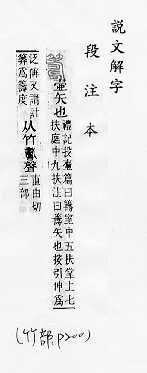 說文解字
段注本
壺矢也禮記投壺篇曰籌室中五扶堂上七
扶庭中九扶注曰籌矢也按引伸為
泛偁又謂計
籌為籌度从竹壽聲直由切
三部
(竹部.P200)